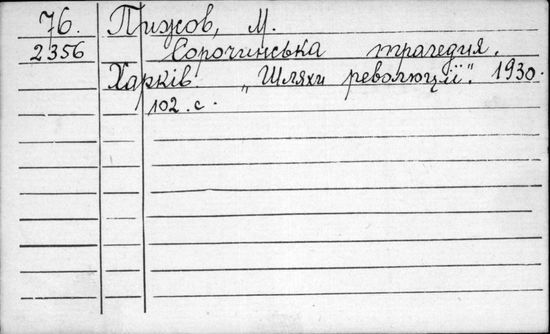 76. Пижов, М.
2356 Сорочинська трагедия.
Харків. „Шляхи революції". 1930.
102. с.